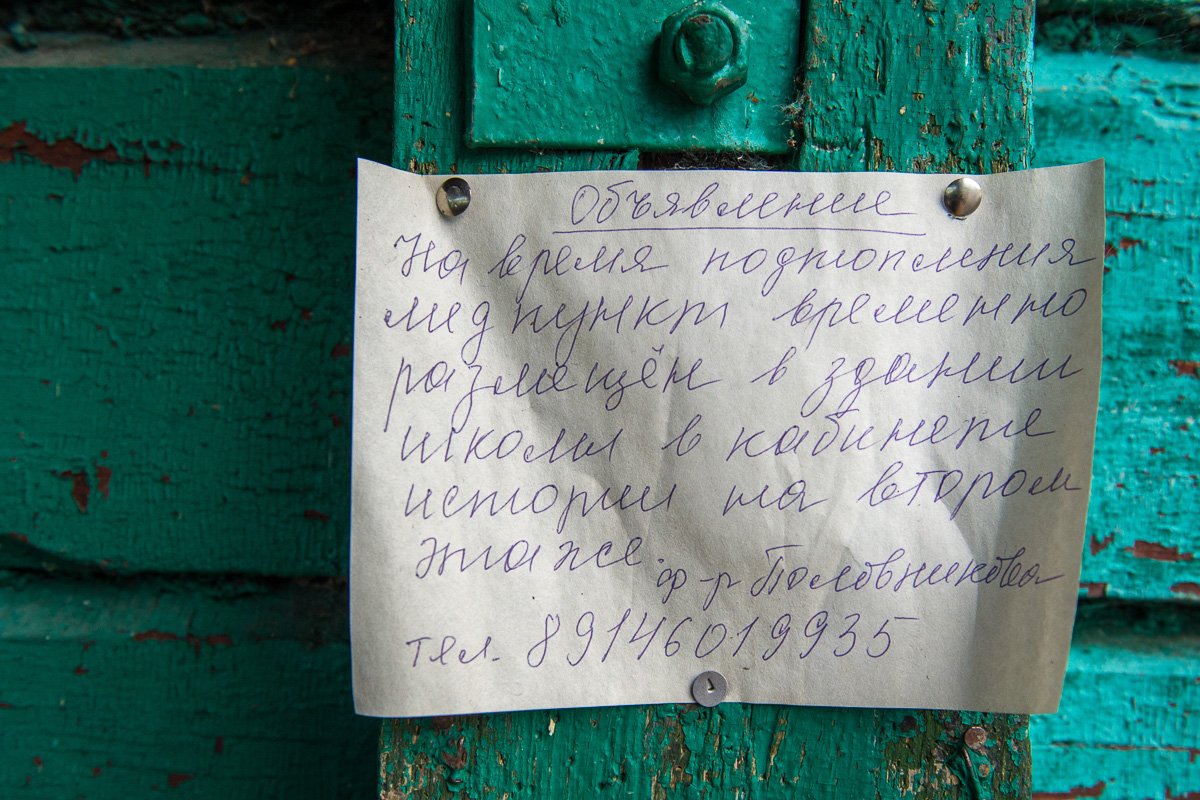 Объявление
На время подтопления
медпункт временно
размещён в здании
школы в кабинете
истории на втором
этаже.
ф-р Половникова
тел. 89146019935